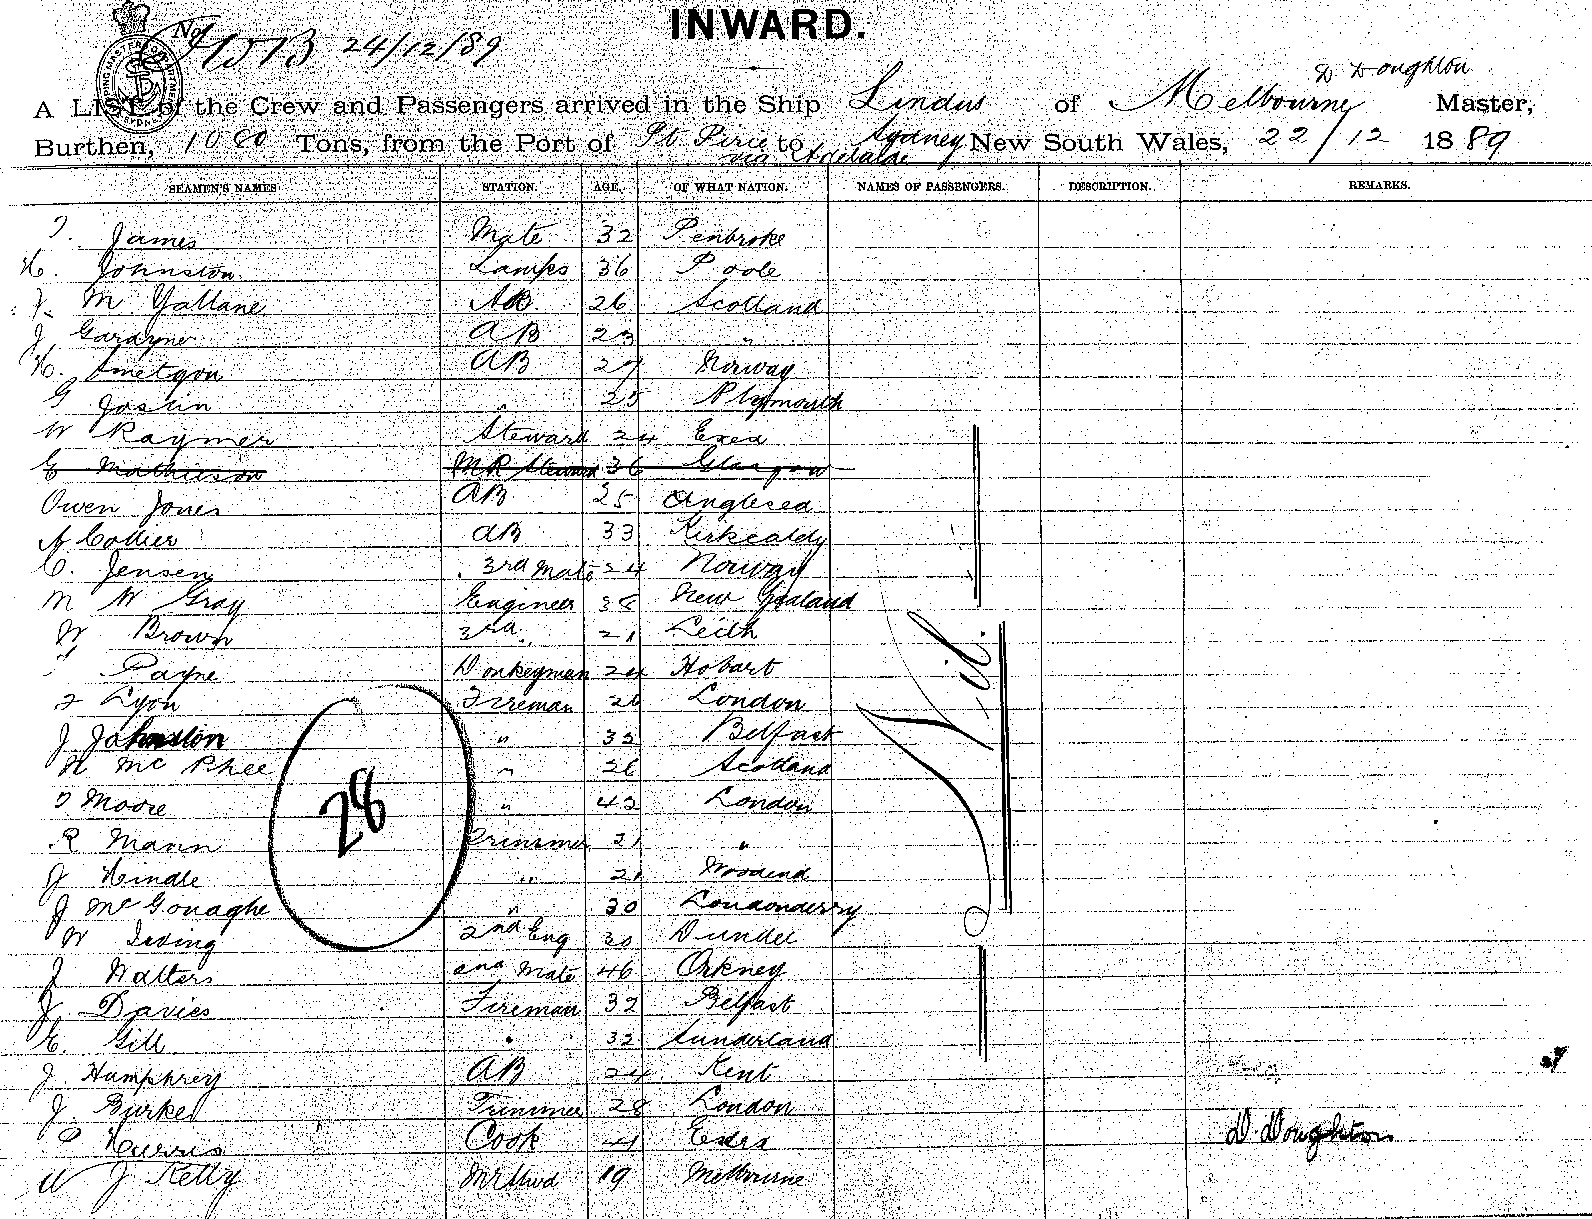 INWARD.
No 24/12/89
D Doughton
A LIST of the Crew and Passengers arrived in the Ship Lindus of Melbourne Master,
Burthen, 1080 Tons, from the Port of Pt Pirie to Sydney New South Wales, 22/12 1889
via Adelaide
SEAMEN'S NAMES STATION. AGE. OF WHAT NATION. NAMES OF PASSENGERS. DESCRIPTION. REMARKS.
James Mate 32 Penbroke
H. Johnston Lamps 36 Poole
M AB 26 Scotland
J AB 23 "
H. AB 27 Norway
G Joslin " 25 Plymouth
W Raymer Steward 24
G Mathieson M R Steward 36 Glasgow
Owen Jones AB 25 Anglesea
A Collier AB 33 Kirkcaldy
C. Jensen 3rd Mate 24 Norway
M W Gray Engineer 38 New Zealand
W Brown 3rd " 21 Leith
Payne Donkeyman 24 Hobart
Lyon Fireman 26 London
J Johnston " 32 Belfast
N McPhee " 26 Scotland
Moore " 42 London
28
R Mann 21 "
J Hindle " 21 Woodend
J McGonaghe " 30 Londonderry
W Irving 2nd Eng 30 Dundee
J Walters 2nd Mate 46 Orkney
J Davies Fireman 32 Belfast
E. Gill " 32 Sunderland
J Humphrey AB 24 Kent
J. Burke Trimmer 28 London
P Cook 41
W J Kelly Mr Stwd 19 Melbourne
Nil.
D. Doughton